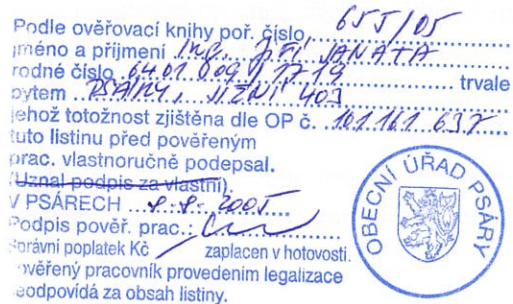 Podle ověřovací knihy poř. číslo 655/05
jméno a příjmení Ing. Jiří JANATA
rodné číslo 64.01 009 / 1719 trvale
bytem PSÁRY, JIŽNÍ 403
jehož totožnost zjištěna dle OP č. 101 161 637
tuto listinu před pověřeným
prac. vlastnoručně podepsal.
(Uznal podpis za vlastní).
V PSÁRECH 2005
Podpis pověř. prac.:
Správní poplatek Kč zaplacen v hotovosti.
Pověřený pracovník provedením legalizace
neodpovídá za obsah listiny.
OBECNÍ ÚŘAD PSÁRY